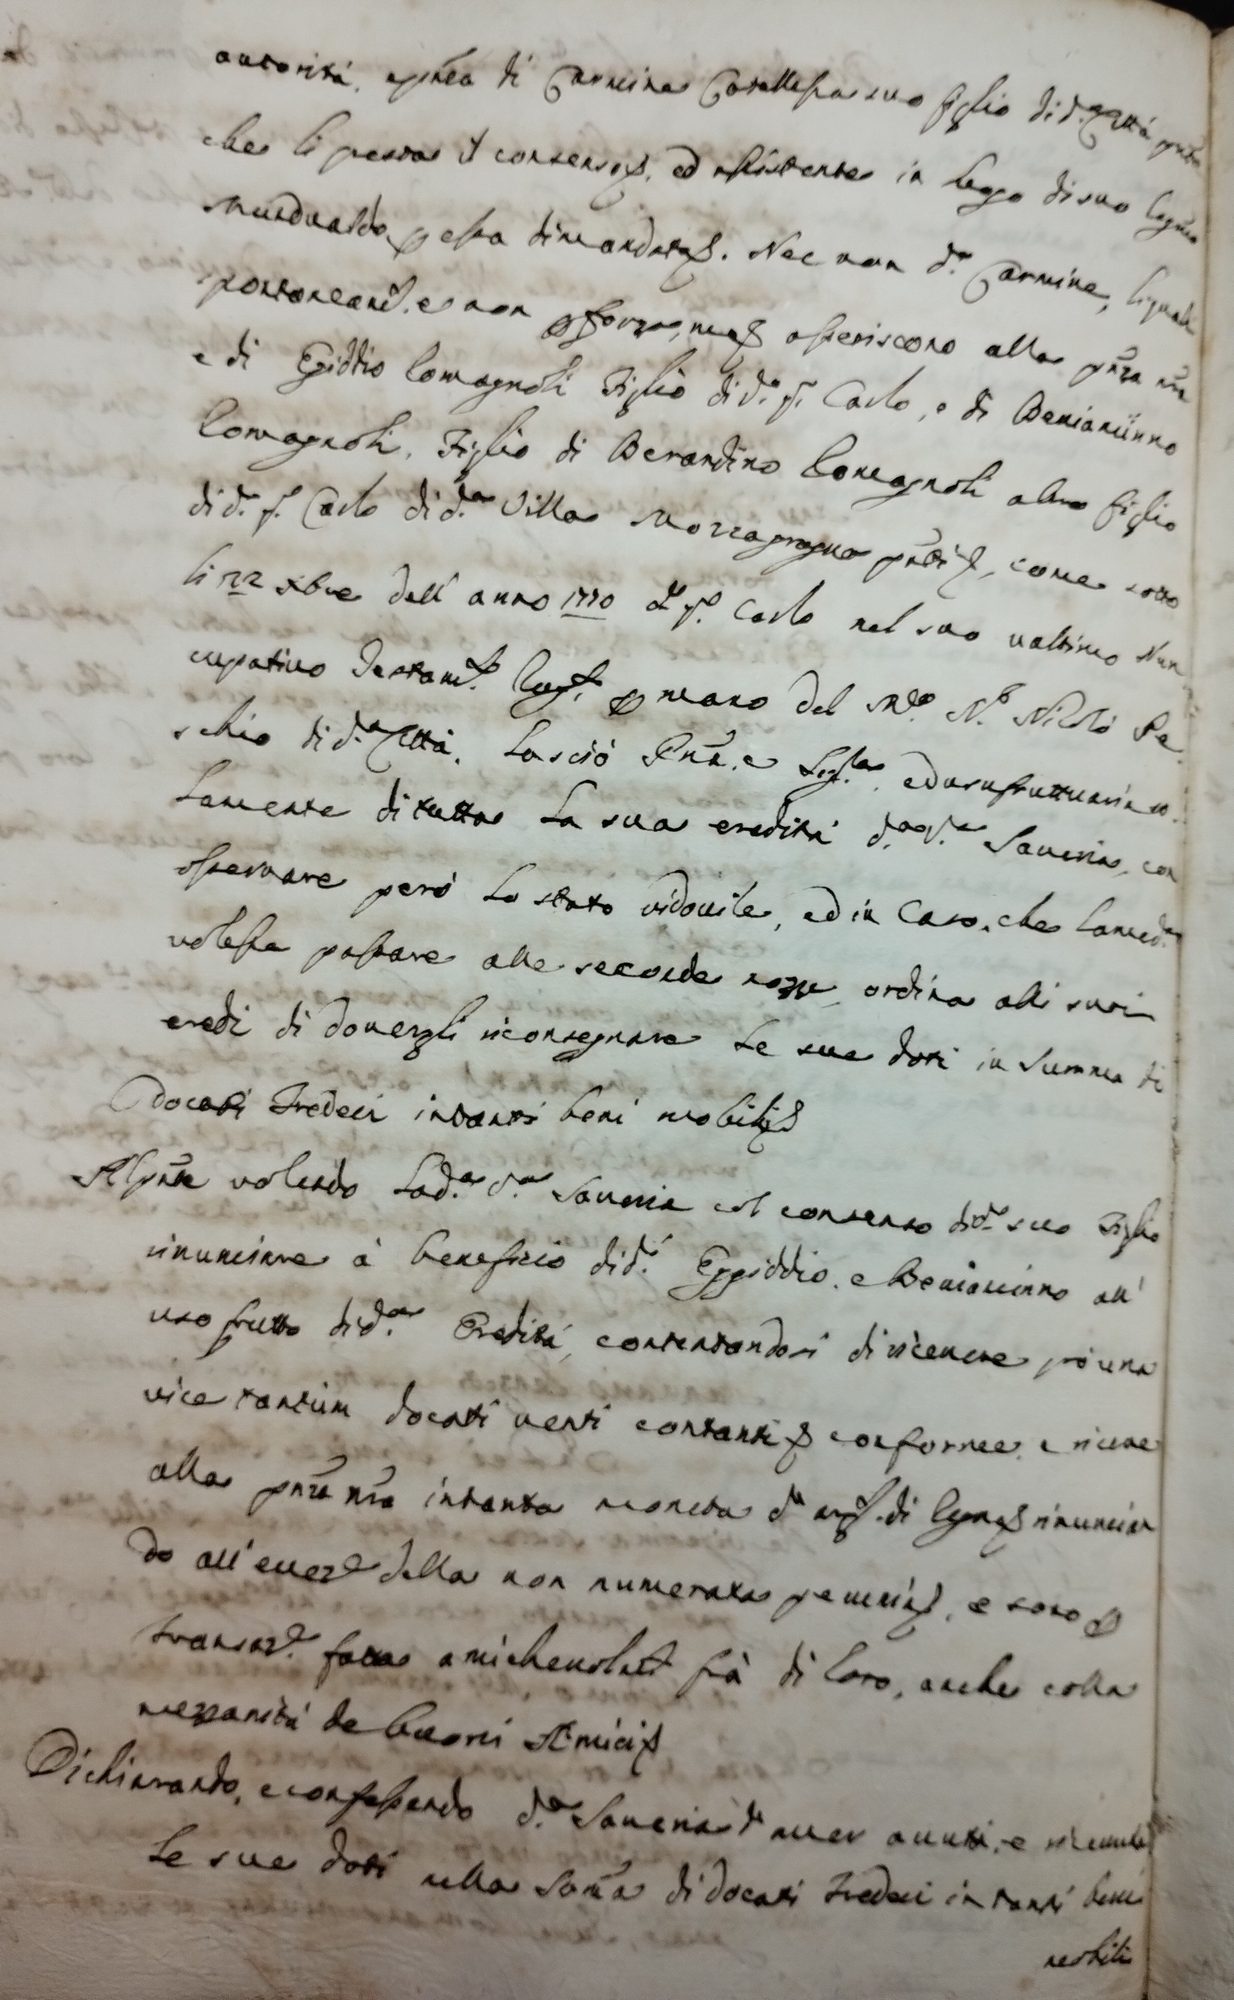 autorità, e pñza di Carmine Cotellessa suo figlio di d.ª Città pñte
che li presta il consenso, ed assistente in luogo di suo legmo
Mundualdo p essa dimandato. Nec non d.º Carmine, li quali
spontaneamt.e e non p forza, asseriscono alla pñza nra
e di Egiddio Comagnoli Figlio di d.º q. Carlo, e di Beniamino
Comagnoli, Figlio di Berardino Comagnoli altro figlio
di d.º q. Carlo di d.ª Villa Mozzagrogna pñti, come sotto
li 22 xbre dell' anno 1770 d.º q.º Carlo nel suo ultimo Nun
cupativo Testam.to p mano del M.co N.r Nicolò Pe
schio di d.ª Città, Lasciò ed usufruttuaria so
lamente di tutta la sua eredità d.ª Saveria, con
osservare però lo stato vidovile, ed in caso, che la med.ª
volesse passare alle seconde nozze, ordina alli suoi
eredi di doverli riconsegnare le sue doti in summa di
Docati Tredeci in tanti beni mobili
Al pñte volendo la d.ª Saveria col consenso di d.º suo Figlio
rinunciare à beneficio di d.i Eggiddio, e Beniamino all'
uso frutto di d.ª Eredità, contentandosi di ricevere p una
vice tantùm docati venti contanti conforme, e riceve
alla pñza nra in tanta moneta d'arg.to di Regno rinuncian
do all' eccez.e della non numerata pecunia, e sono p
transaz.e fatta amichevolmt.e frà di loro, anche colla
mezzanità de buoni Amici
Dichiarando, e confessando d.ª Saveria d'aver avuti, e ricevuti
le sue doti nella somma di docati Tredeci in tanti beni
mobili